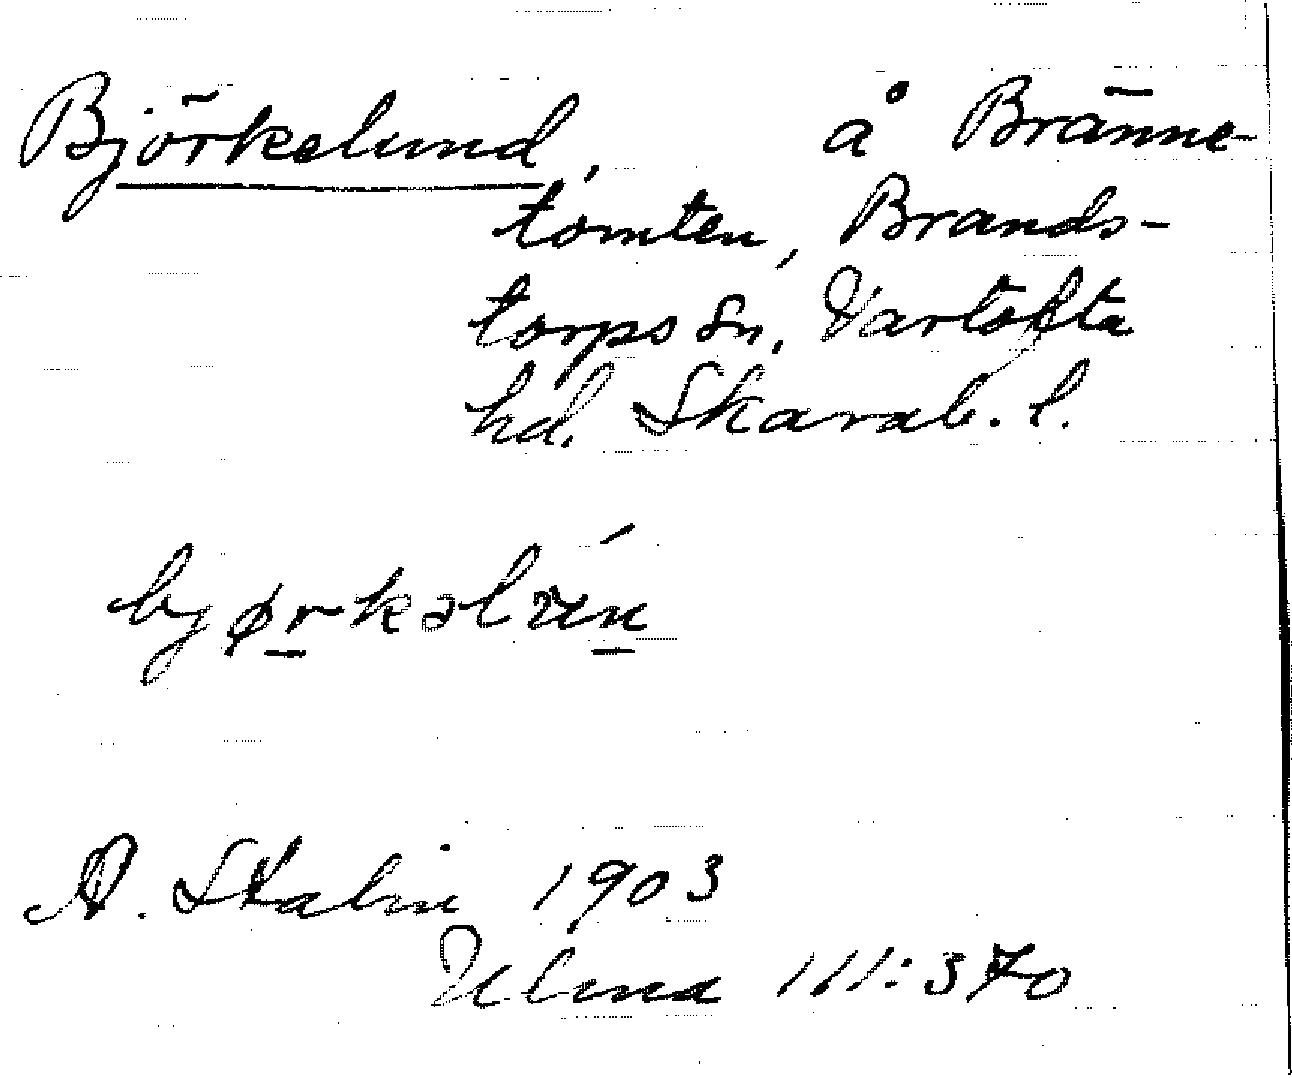 Björkelund, å Bränne-
tomten, Brands-
torps sn, Vartofta
hd. Skarab. l.
bjørkəlun
A. Stalin 1903
Ulma 111:370